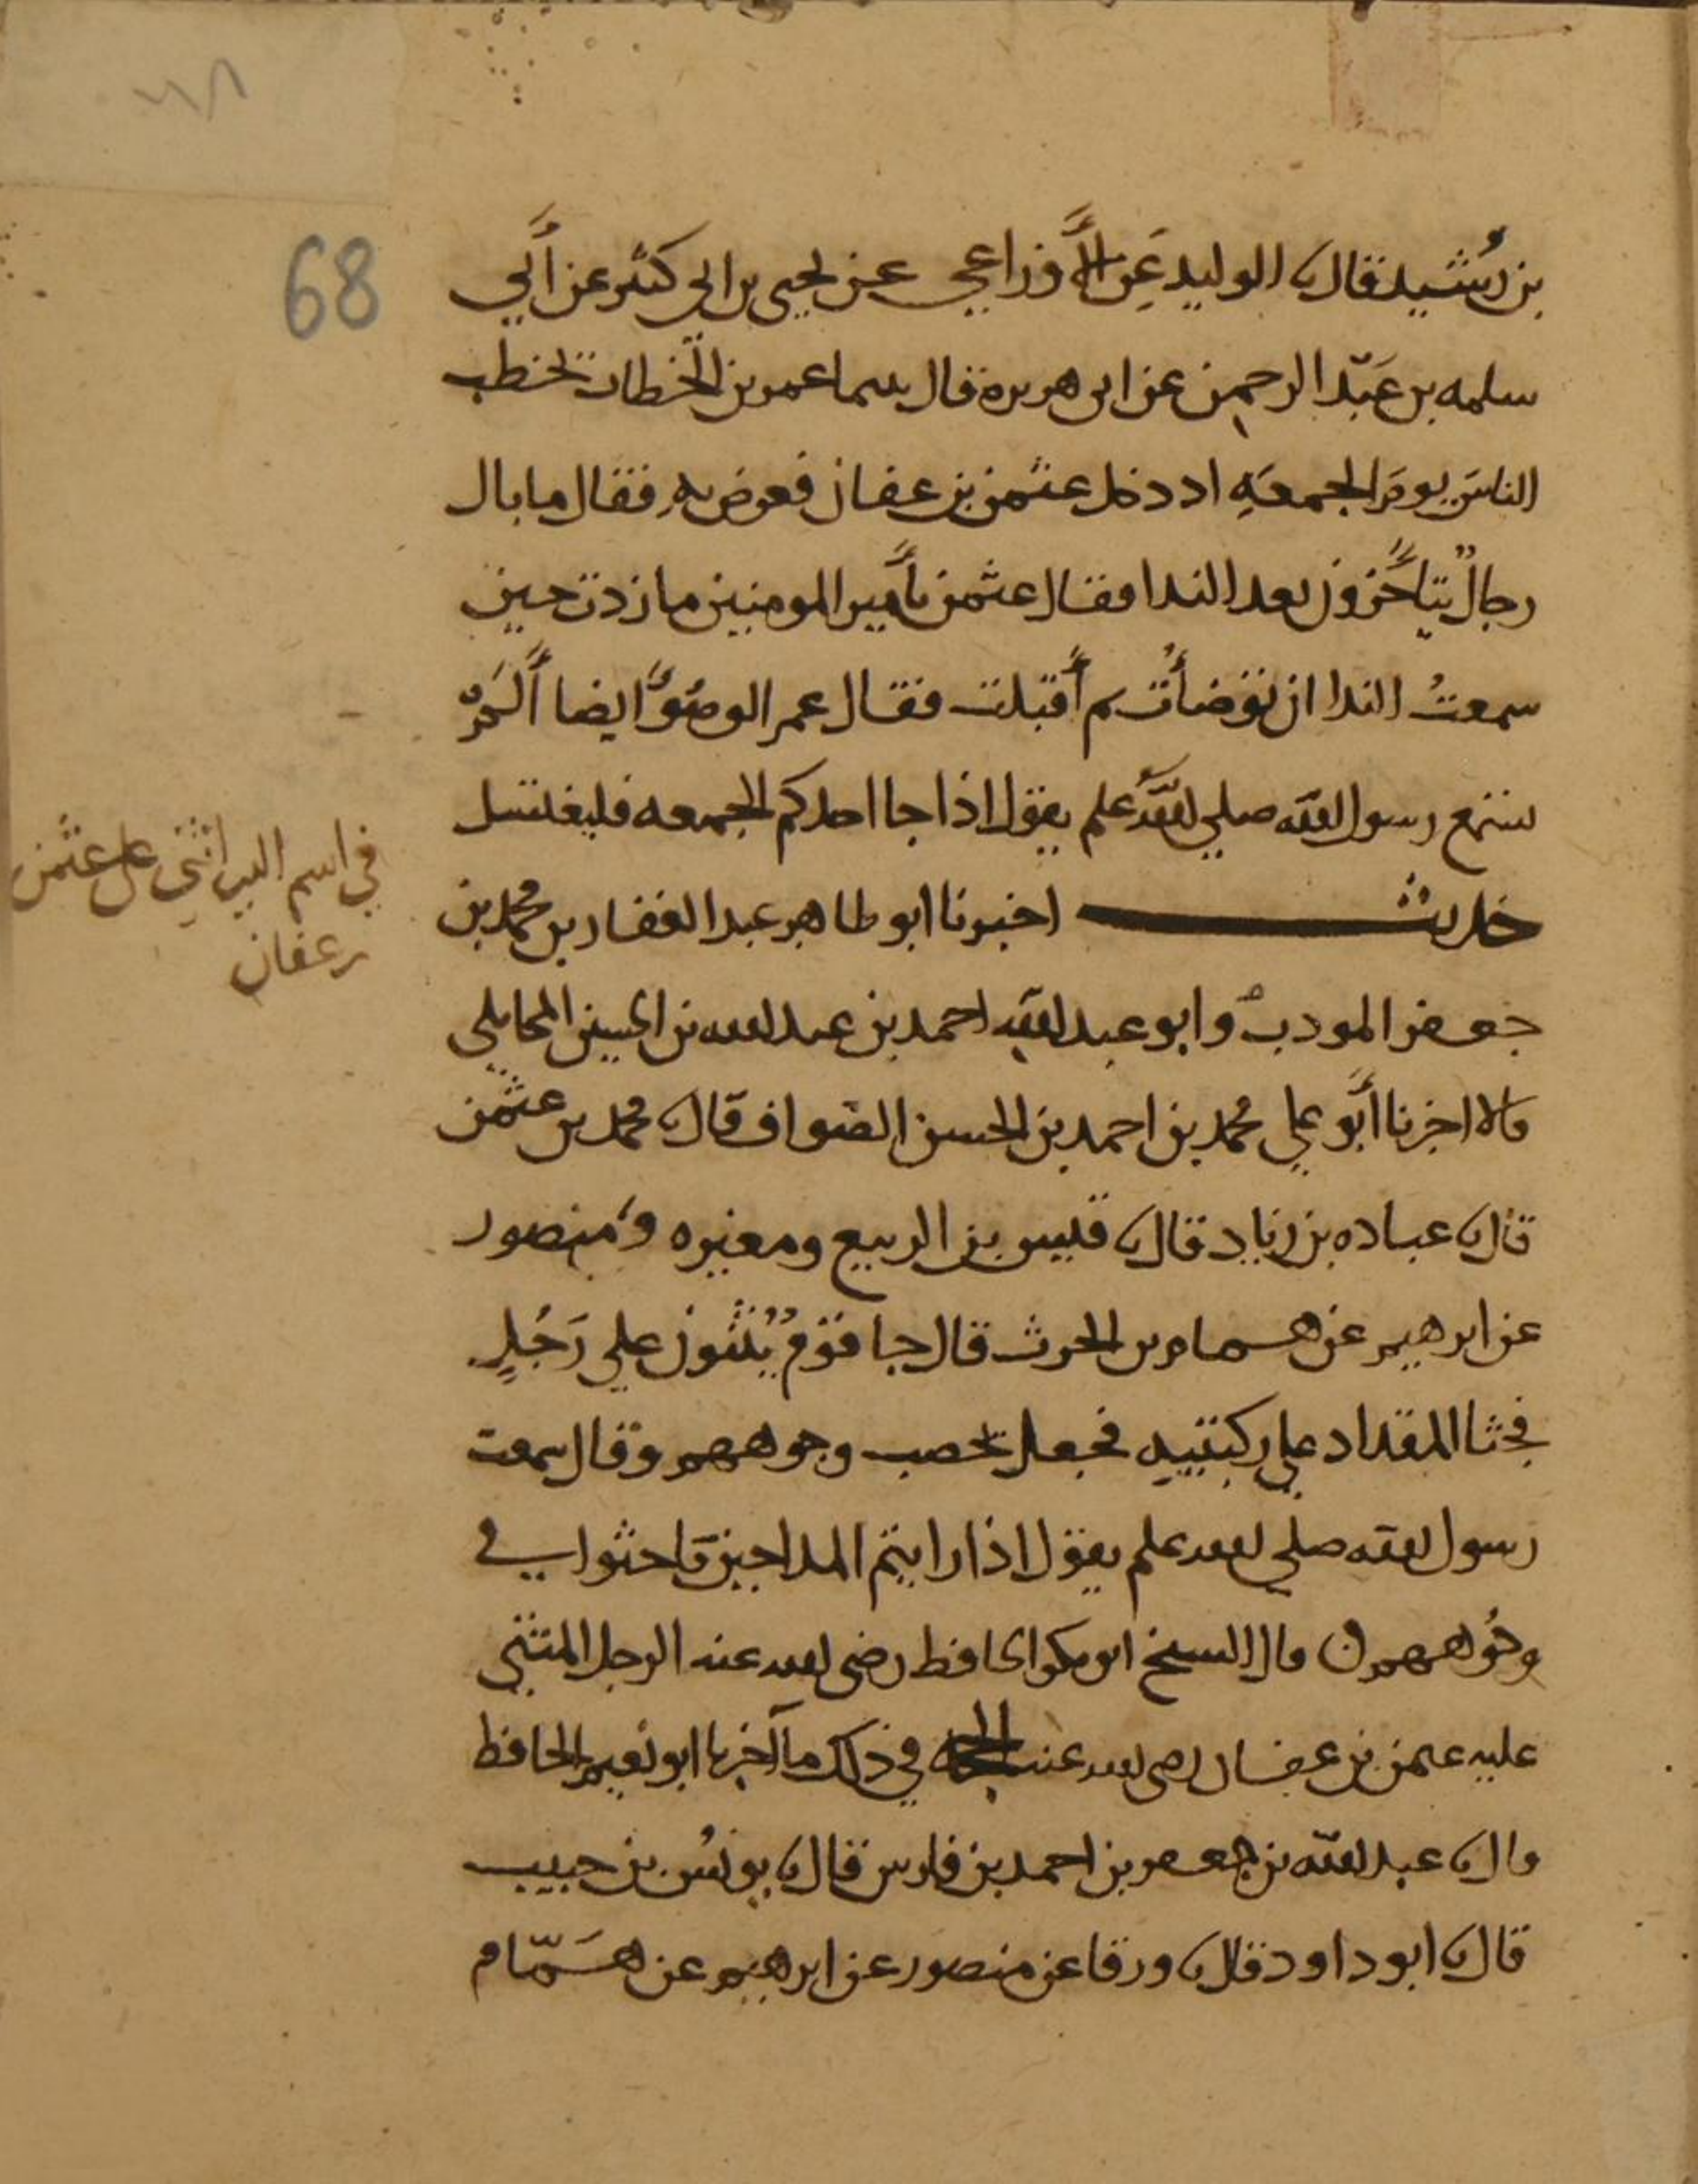 68
بن رُشيد قال نا الوليد عَن الأوزاعي عن يحيى بن ابي كثير عن أبي
سلمه بن عَبْد الرحمن عن ابي هريرة قال بينما عمر بن الخطاب يخطب
الناسَ يومَ الجمعَهِ اذ دخل عثمن بن عفان فعرض به فقال ما بال
رجالٌ يتأخّرون بعد الندا فقال عثمن يأمير المومنين ما زدت حين
سمعتُ الندا ان توضأتُ ثم أقبلت فقال عمر الوضوَّ ايضا ألَمْ
تسمع رسول الله صلى الله علم يقول اذا جا احدكم الجمعه فليغتسل
حديث اخبرنا ابو طاهر عبد الغفار بن محمد بن
جعفر المودب وابو عبد الله احمد بن عبد الله بن الحسين المحاملي
قالا اخبرنا أبو علي محمد بن احمد بن الحسن الصواف قال نا محمد بن عثمن
قال نا عباده بن زياد قال نا قيس بن الربيع ومغيره ومنصور
عن ابرهيم عن همام بن الحرث قال جا قومٌ يُثنون علي رَجُلٍ
فجثا المقداد علي ركبتيه فجعل يحصب وجوههم وقال سمعت
رسول الله صلي الله علم يقول اذا رايتم المداحين فاحثوا في
وجُوههم قال الشيخ ابو بكر الحافظ رضي الله عنه الرجل المثني
عليه عثمن بن عفان رضي الله عنه الحجه في ذلك ما اخبرنا ابو نعيم الحافظ
قال نا عبد الله بن جعفر بن احمد بن فارس قال نا يونسُ بن حبيب
قال نا ابو داود قال نا ورقا عن منصور عن ابرهيم عن همّام
في اسم الذي اثني علي عثمن
بن عفان